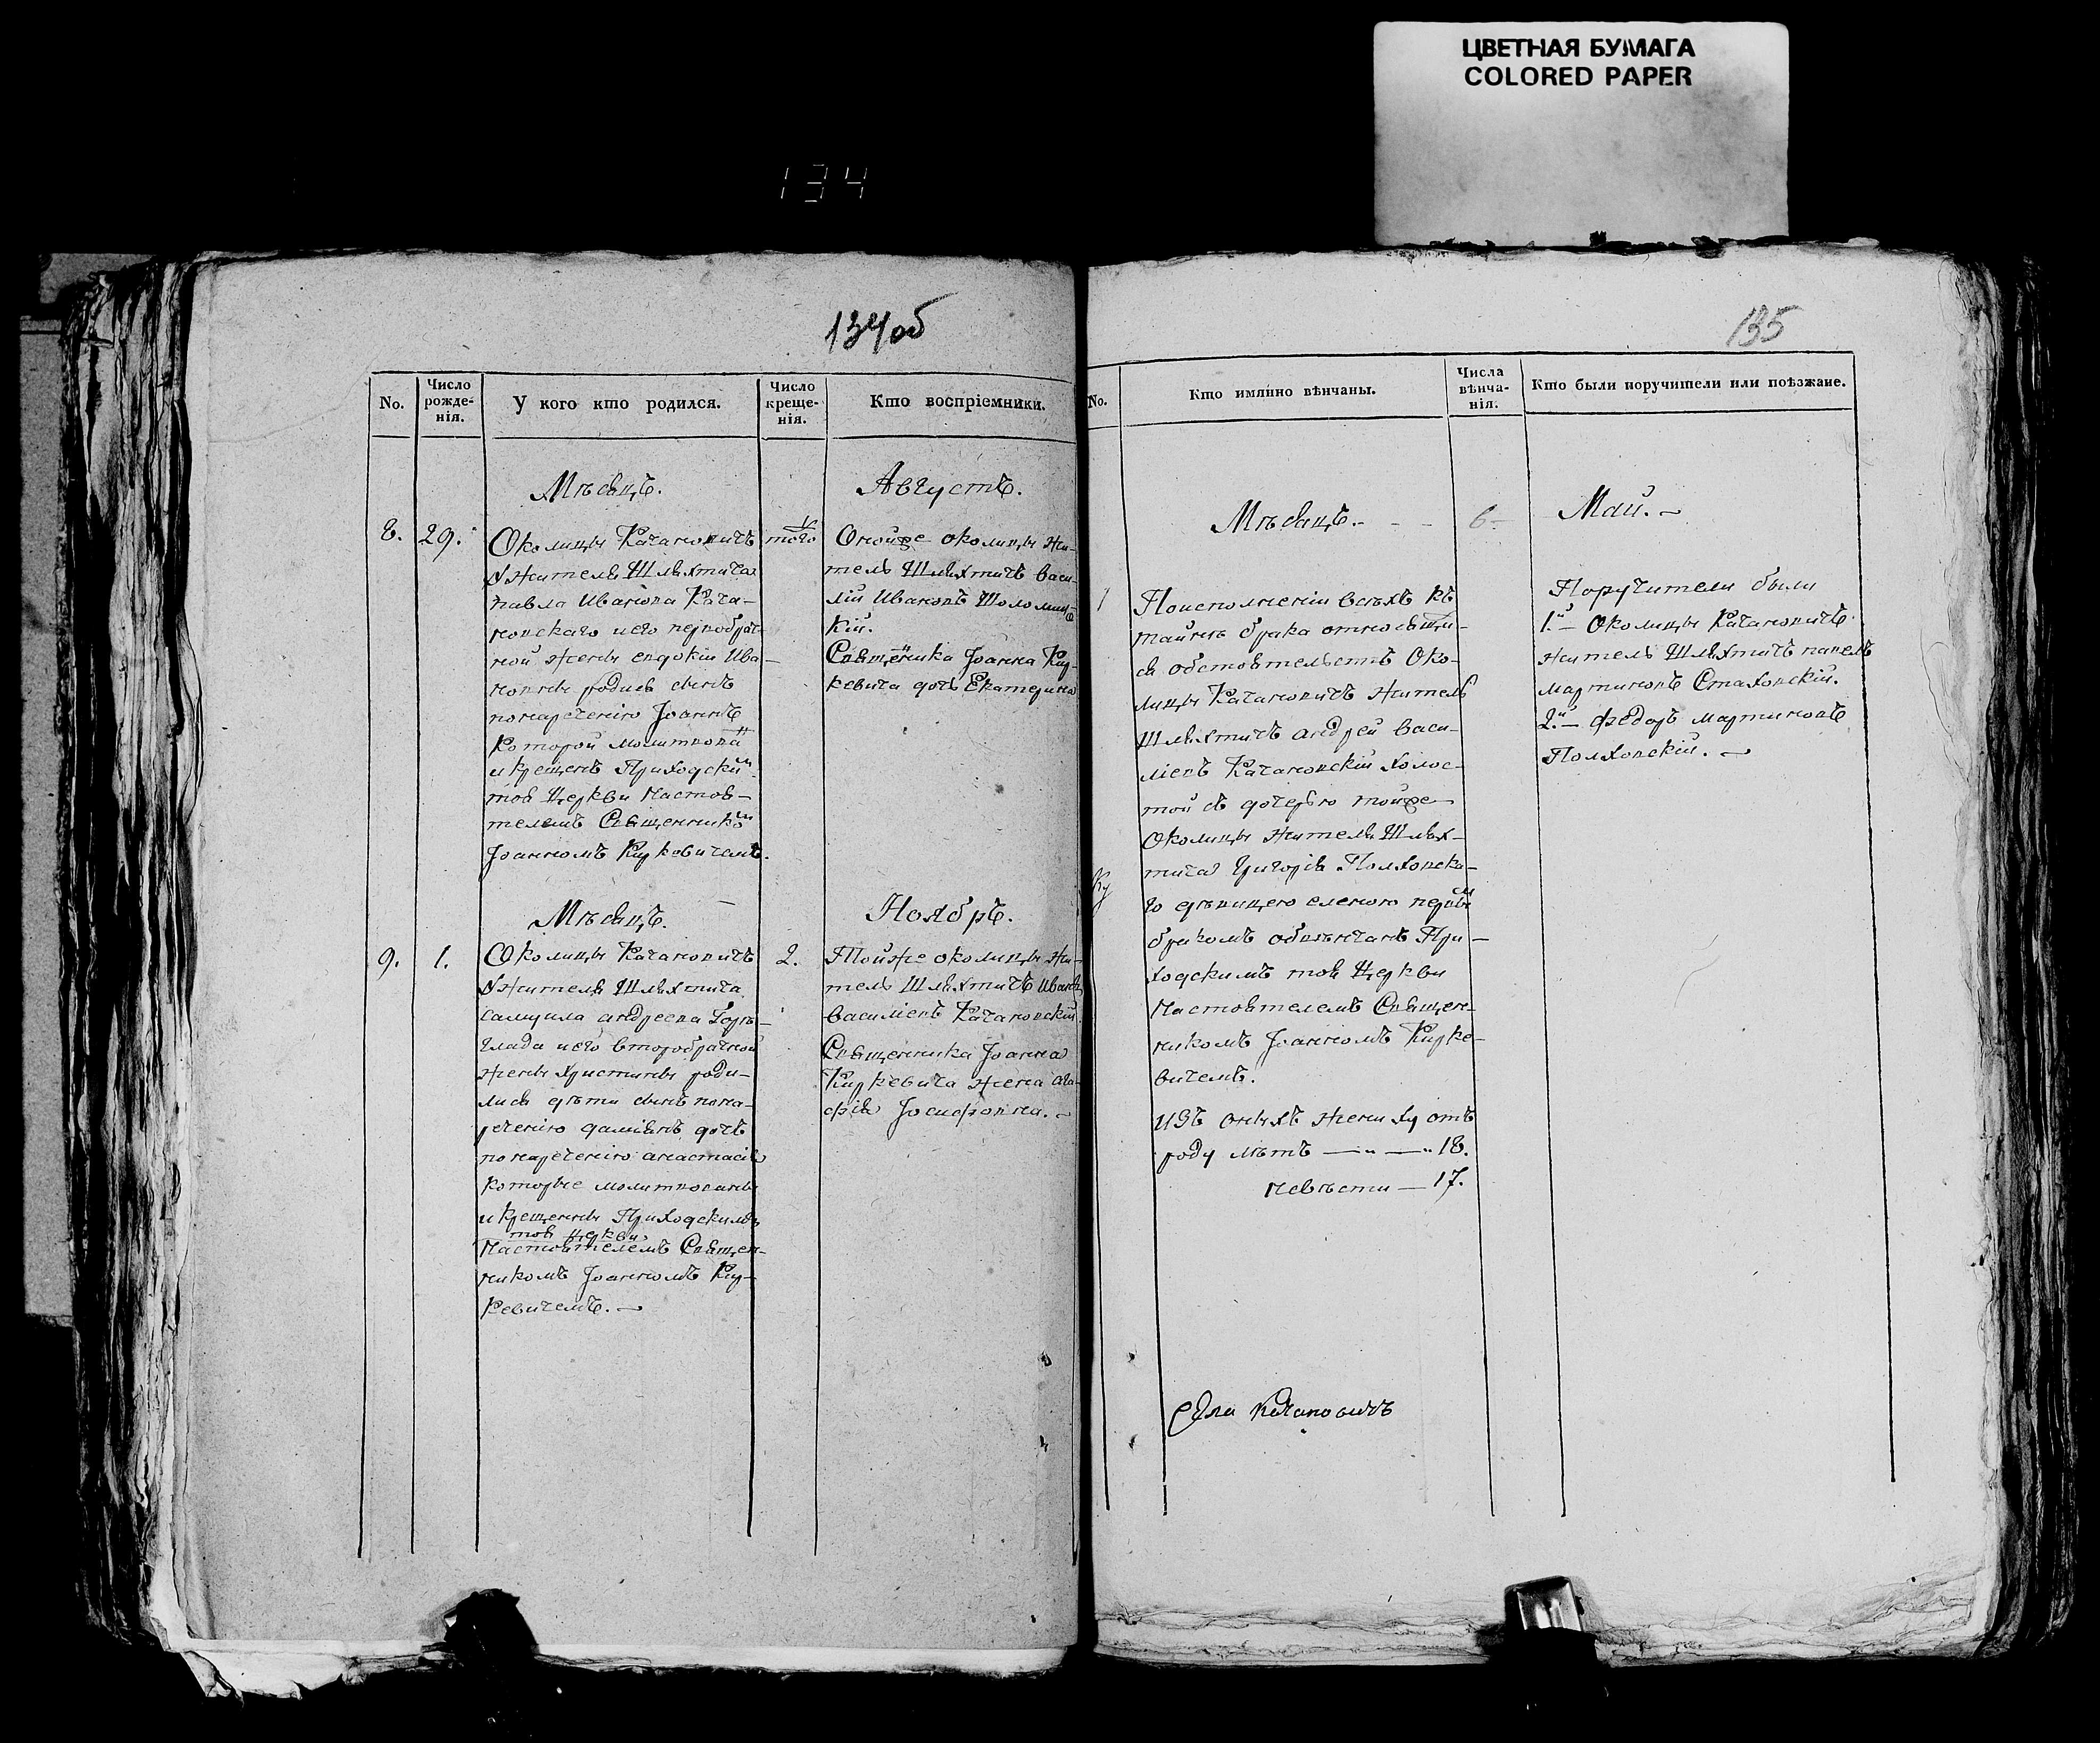 ЦВЕТНАЯ БУМАГА
COLORED PAPER
134
134об
No.
Число рожде-нія.
У кого кто родился.
Число креще-нія.
Кто воспріемники.
Мѣсяцъ.
Августъ.
8.
29.
Околицы Качановичъ
у жителя Шляхтича
павла Иванова Кача-
новскаго иего первобрач-
ной жены евдокіи Ива-
новны родися сынъ
понареченію Іоаннъ
Которой молитвован
икрещенъ Приходским
тоя Церкви Настоя-
телемъ Священником
Іоанномъ Киркевичемъ.
того
Онойже околицы жи-
тель Шляхтичъ васи-
лій Ивановъ Шоломиц-
кій.
Священника Іоанна Кир-
кевича дочь Екатерина
Мѣсяцъ.
Ноябрь.
9.
1.
Околицы Качановичъ
у жителя Шляхтича
самуила андреева
иего второбрачной
жены христины роди-
лися дѣти сынъ пона-
реченію даміянъ, дочь
понареченію анастасія
которые молитвованы
и крещенны Приходскимъ
тоя церкви
Настоятелемъ Священ-
никомъ Іоанномъ Кир-
кевичемъ.
2.
Тойже околицы жи-
тель Шляхтичъ Иванъ
василіевъ Качановскій
Священника Іоанна
Киркевича жена ага-
фія Іосифовна.
135
No.
Кто имянно вѣнчаны.
Числа вѣнча-нія.
Кто были поручители или поѣзжане.
Мѣсяцъ.
6
Май.
1
Поисполненіи всѣхъ къ
тайнѣ брака относящи-
ся обстоятельствъ Око-
лицы Качановичъ житель
Шляхтичъ андрей васи-
ліевъ Качановскій холос-
той съ дочерью тойже
Околицы жителя Шлях-
тича григорія Полховска-
го дѣвицею еленою первым
бракомъ обвѣнчанъ При-
ходскимъ тоя Церкви
Настоятелемъ Священ-
никомъ Іоанномъ Кирке-
вичемъ.
изъ оныхъ жениху отъ
роду лѣтъ — „ — „ 18.
невѣсти — 17.
Поручители были
1.й — Околицы Качановичъ
житель Шляхтичъ павелъ
мартиновъ Стаховскій.
2.й — федоръ мартиновъ
Полховскій.
Качановичъ